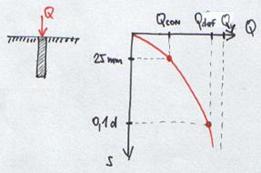 Q
Qcon Qdef Qy Q
25mm
0,1d
s